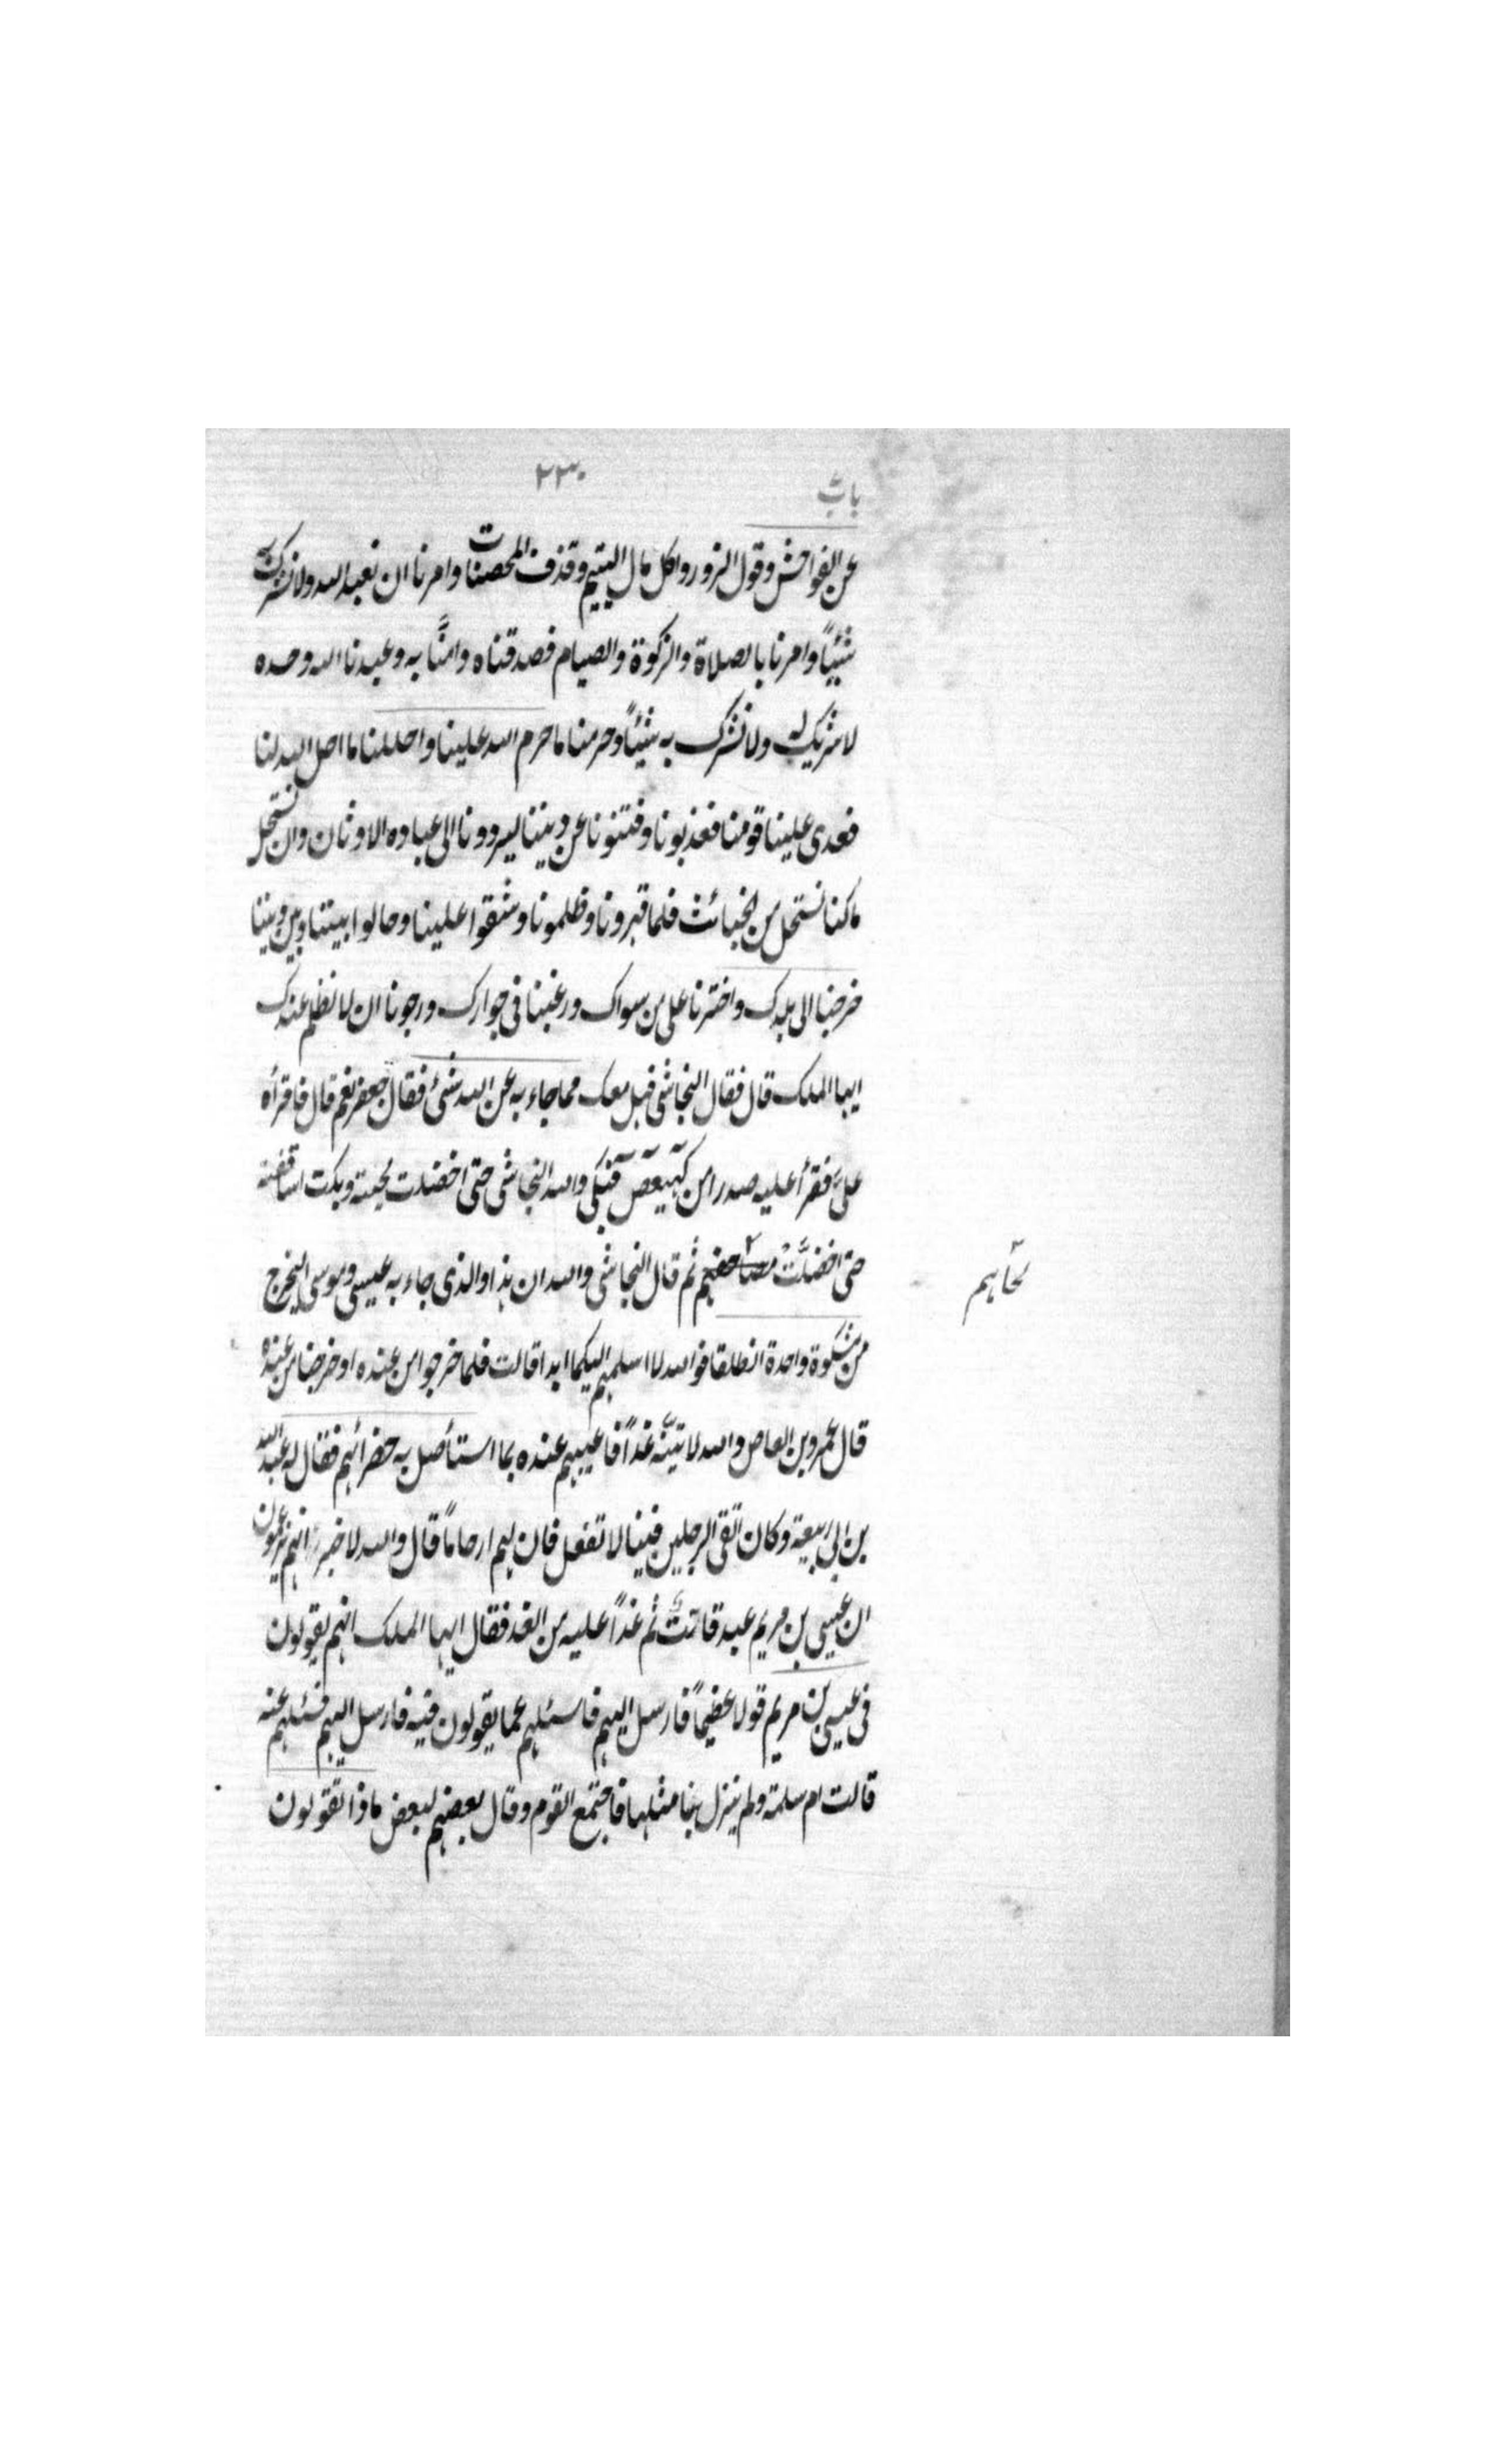 ٢٣٠
باب
عن الفواحش وقول الزور واكل مال اليتيم وقذف المحصنات وامرنا ان نعبد الله ولا نشرك به
شيئاً وامرنا بالصلاة والزكوة والصيام فصدقناه وامنّا به وعبدنا الله وحده
لا شريك له ولا نشرك به شيئاً وحرمنا ما حرم الله علينا واحللنا ما احل الله لنا
فعدى علينا قومنا فعذبونا وفتنونا عن ديننا ليردونا الى عباده الاوثان وان نستحل
ما كنا نستحل من الخبائث فلما قهرونا وظلمونا وشقوا علينا وحالوا بيننا وبين ديننا
خرجنا الى بلدك واخترنا على من سواك ورغبنا فى جوارك ورجونا ان لا نظلم عندك
ايها الملك قال فقال النجاشى فهل معك مما جاء به عن الله شئ فقال جعفر نعم قال فاقرأه
علىّ فقرأ عليه صدرا من كهيعص فبكى والله النجاشى حتى اخضلت لحيته وبكت اساقفته
حتى اخضلّت مصاحفهم ثم قال النجاشى والله ان هذا والذى جاء به عيسى وموسى ليخرج
لحاهم
من مشكوة واحدة انطلقا فوالله لا اسلمهم اليكما ابدا قالت فلما خرجوا من عنده او خرجنا من عنده
قال عمرو بن العاص والله لاتينّه غداً فاعيبهم عنده بما استأصل به خضرائهم فقال له عبد الله
بن ابى ربيعة وكان اتقى الرجلين فينا لا تفعل فان لهم ارحاماً قال والله لاخبرنه انهم يزعمون
ان عيسى بن مريم عبد قالت ثم غداً عليه من الغد فقال ايها الملك انهم يقولون
فى عيسى بن مريم قولا عظيماً فارسل اليهم فاسئلهم عما يقولون فيه فارسل اليهم فسئلهم عنه
قالت ام سلمة ولم ينزل بنا مثلها فاجتمع القوم وقال بعضهم لبعض ماذا تقولون